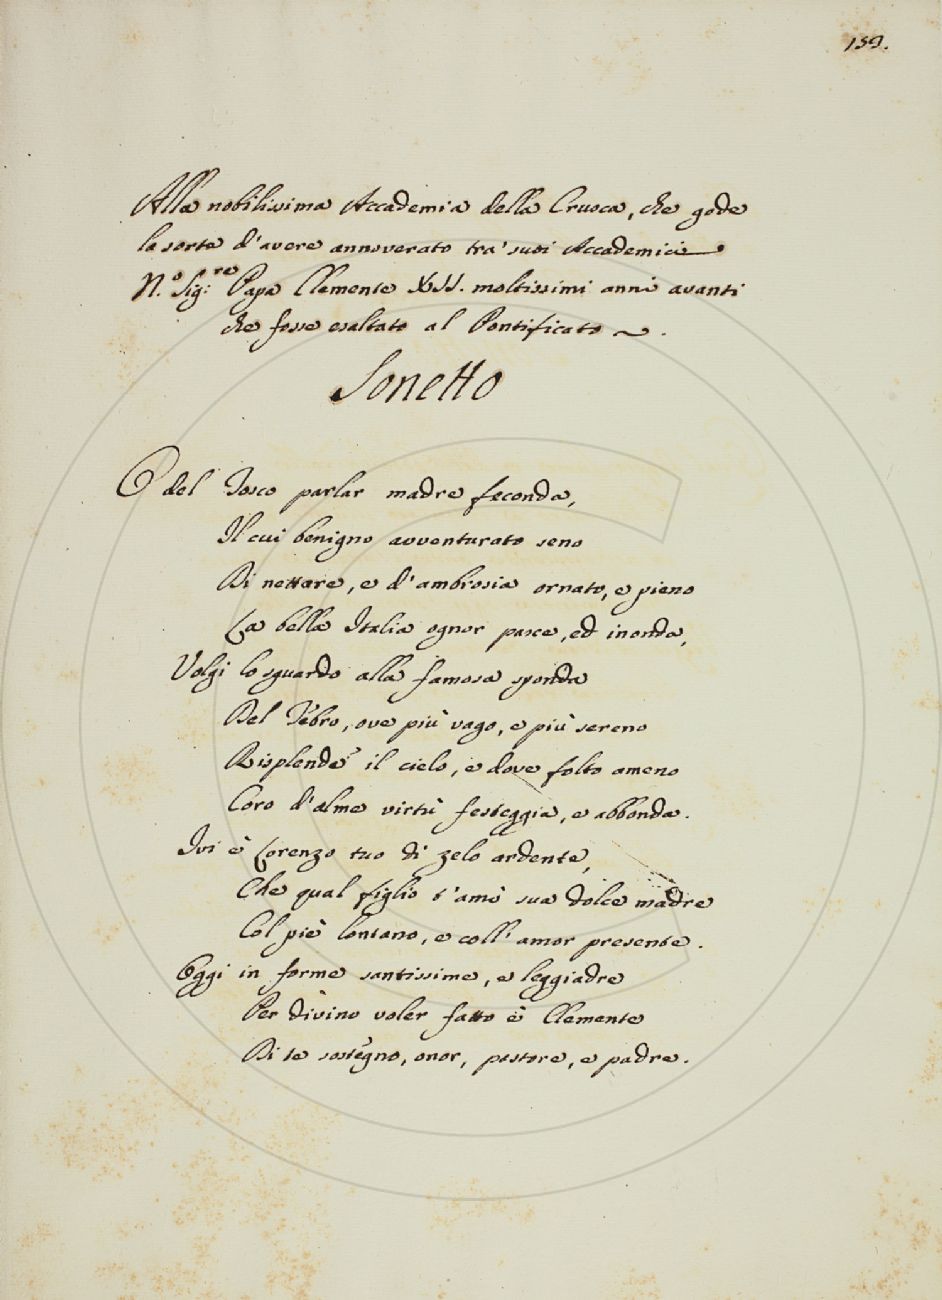 159.
Alla nobilissima Accademia della Crusca, che gode
la sorte d'avere annoverato tra' suoi Accademici
N.º Sig:re Papa Clemente XII. moltissimi anni avanti
che fosse esaltato al Pontificato ~.
Sonetto
O del Tosco parlar madre feconda,
Il cui benigno avventurato seno
Di nettare, e d'ambrosia ornato, e pieno
La bella Italia ognor pasce, ed inonda,
Volgi lo sguardo alla famosa sponda
Del Tebro, ove più vago, e più sereno
Risplende il cielo, e dove folto ameno
Coro d'alme virtù festeggia, e abbonda.
Ivi è Lorenzo tuo di zelo ardente,
Che qual figlio t'amò sua dolce madre
Col piè lontano, e coll' amor presente.
Oggi in forme santissime, e leggiadre
Per divino voler fatto è Clemente
Di te sostegno, onor, pastore, e padre.